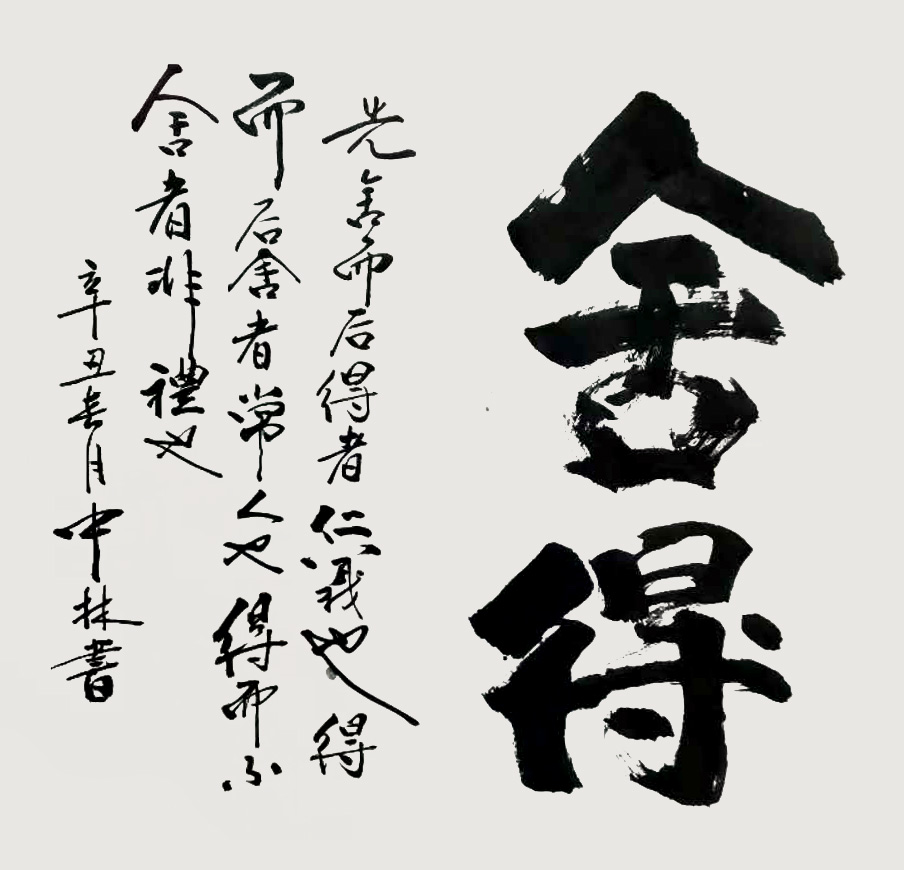 舍得
先舍而后得者仁義也得
而后舍者常人也得而不
舍者非禮也
辛丑春月中林書